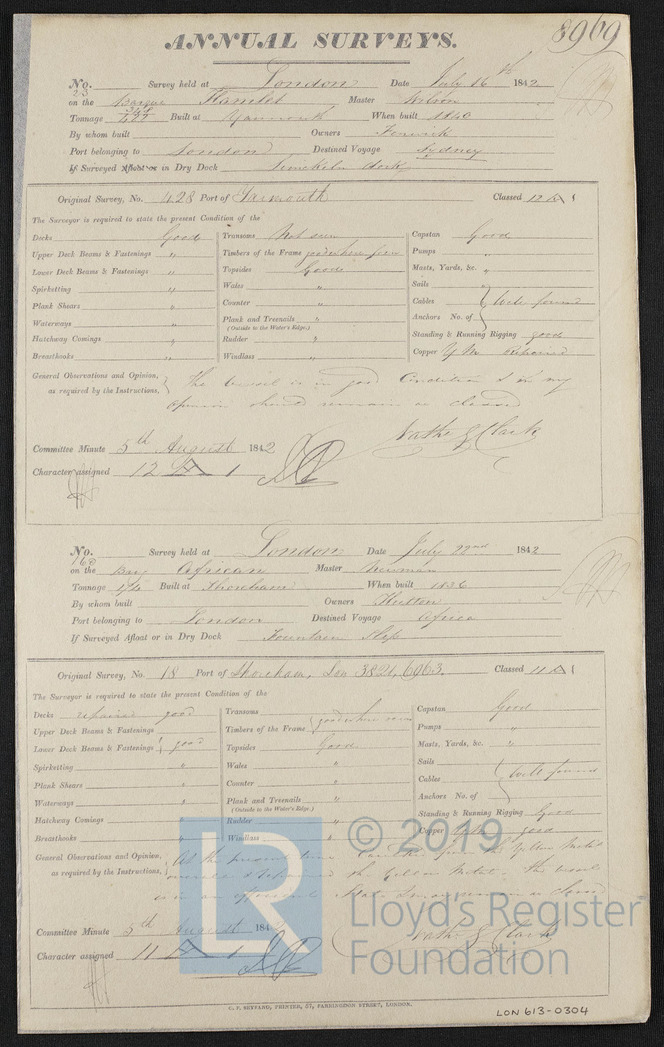 8969
ANNUAL SURVEYS.
No. 23 Survey held at London Date July 16th 1842
on the Barque Hamlet Master Wilson
Tonnage Built at Yarmouth When built 1840
By whom built Owners Fenwick
Port belonging to London Destined Voyage Sydney
If Surveyed Afloat or in Dry Dock Limekiln dock
Original Survey, No. 428 Port of Yarmouth Classed 12 A 1
The Surveyor is required to state the present Condition of the
Decks Good Transoms Not seen Capstan Good
Upper Deck Beams & Fastenings " Timbers of the Frame good where seen Pumps "
Lower Deck Beams & Fastenings " Topsides Good Masts, Yards, &c. "
Spirketting " Wales " Sails
Plank Shears " Counter " Cables Well found
Waterways " Plank and Treenails " Anchors No. of
(Outside to the Water's Edge.)
Hatchway Comings " Rudder " Standing & Running Rigging good
Breasthooks " Windlass " Copper Y M Repaired
General Observations and Opinion, The vessel is in good Condition & in my
as required by the Instructions, opinion should remain as classed
Nathl G Clark
Committee Minute 5th August 1842
Character assigned 12 A 1
No. 160 Survey held at London Date July 22nd 1842
on the Brig African Master Newman
Tonnage Built at Shoreham When built 1836
By whom built Owners Hutton
Port belonging to London Destined Voyage Africa
If Surveyed Afloat or in Dry Dock Fountain Slip
Original Survey, No. 18 Port of Shoreham, Lon 3821, 6963. Classed 11 A 1
The Surveyor is required to state the present Condition of the
Decks repaired good Transoms Capstan Good
Upper Deck Beams & Fastenings Timbers of the Frame good where seen Pumps "
Lower Deck Beams & Fastenings good Topsides Good Masts, Yards, &c. "
Spirketting " Wales " Sails
Plank Shears " Counter " Cables Well found
Waterways " Plank and Treenails " Anchors No. of
(Outside to the Water's Edge.)
Hatchway Comings Rudder " Standing & Running Rigging Good
Breasthooks " Windlass " Copper Y M good
General Observations and Opinion, At the present time the Yellow Metal
as required by the Instructions, the Yellow Metal. The vessel
is in an efficient state as classed
Nathl G Clark
Committee Minute 5th August 184
Character assigned 11 A 1
C. F. SEYFANG, PRINTER, 57, FARRINGDON STREET, LONDON.
LON 613-0304
LR
© 2019
Lloyd's Register
Foundation